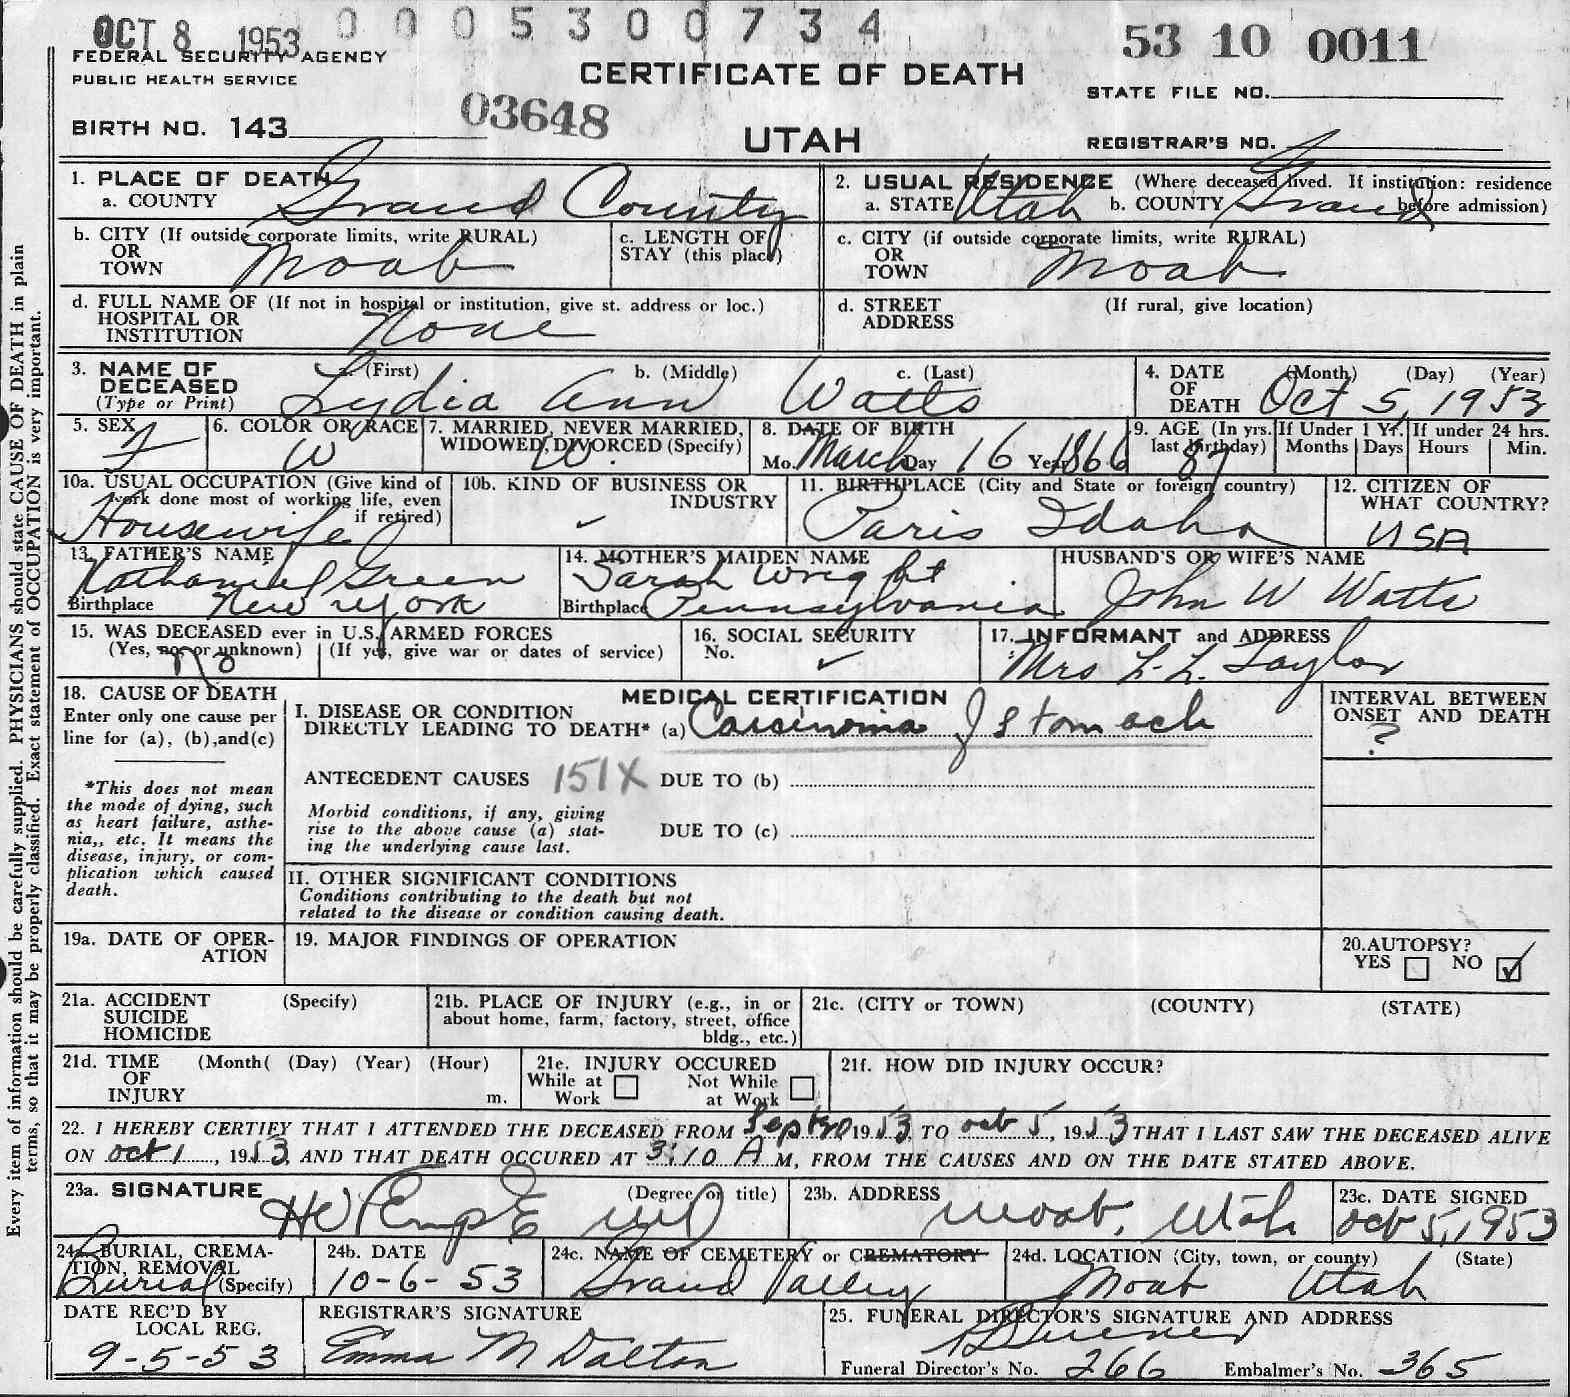 OCT 8 1953
0 0 0 5 3 0 0 7 3 4
53 10 0011
FEDERAL SECURITY AGENCY
PUBLIC HEALTH SERVICE
CERTIFICATE OF DEATH
STATE FILE NO.
BIRTH NO. 143
03648
UTAH
REGISTRAR'S NO.
1. PLACE OF DEATH
a. COUNTY Grand County
2. USUAL RESIDENCE (Where deceased lived. If institution: residence before admission)
a. STATE Utah b. COUNTY Grand
b. CITY (If outside corporate limits, write RURAL)
OR
TOWN Moab
c. LENGTH OF
STAY (this place)
c. CITY (if outside corporate limits, write RURAL)
OR
TOWN Moab
d. FULL NAME OF (If not in hospital or institution, give st. address or loc.)
HOSPITAL OR
INSTITUTION None
d. STREET (If rural, give location)
ADDRESS
3. NAME OF
DECEASED
(Type or Print)
a. (First) b. (Middle) c. (Last)
Lydia Ann Watts
4. DATE (Month) (Day) (Year)
OF
DEATH Oct 5, 1953
5. SEX
F
6. COLOR OR RACE
W
7. MARRIED, NEVER MARRIED,
WIDOWED, DIVORCED (Specify)
W.
8. DATE OF BIRTH
Mo. March Day 16 Year 1866
9. AGE (In yrs.
last birthday)
87
If Under 1 Yr.
Months Days
If under 24 hrs.
Hours Min.
10a. USUAL OCCUPATION (Give kind of
work done most of working life, even
if retired)
Housewife
10b. KIND OF BUSINESS OR
INDUSTRY
✓
11. BIRTHPLACE (City and State or foreign country)
Paris Idaho
12. CITIZEN OF
WHAT COUNTRY?
USA
13. FATHER'S NAME
Nathaniel Green
Birthplace New York
14. MOTHER'S MAIDEN NAME
Sarah Wright
Birthplace Pennsylvania
HUSBAND'S OR WIFE'S NAME
John W Watts
15. WAS DECEASED ever in U.S. ARMED FORCES
(Yes, no, or unknown) (If yes, give war or dates of service)
No
16. SOCIAL SECURITY
No.
✓
17. INFORMANT and ADDRESS
Mrs L. L. Taylor
18. CAUSE OF DEATH
Enter only one cause per
line for (a), (b), and (c)
*This does not mean
the mode of dying, such
as heart failure, asthe-
nia,, etc. It means the
disease, injury, or com-
plication which caused
death.
MEDICAL CERTIFICATION
I. DISEASE OR CONDITION
DIRECTLY LEADING TO DEATH* (a) Carcinoma of stomach
INTERVAL BETWEEN
ONSET AND DEATH
?
ANTECEDENT CAUSES 151X DUE TO (b)
Morbid conditions, if any, giving
rise to the above cause (a) stat-
ing the underlying cause last.
DUE TO (c)
II. OTHER SIGNIFICANT CONDITIONS
Conditions contributing to the death but not
related to the disease or condition causing death.
19a. DATE OF OPER-
ATION
19. MAJOR FINDINGS OF OPERATION
20. AUTOPSY?
YES NO ✓
21a. ACCIDENT (Specify)
SUICIDE
HOMICIDE
21b. PLACE OF INJURY (e.g., in or
about home, farm, factory, street, office
bldg., etc.)
21c. (CITY or TOWN) (COUNTY) (STATE)
21d. TIME (Month( (Day) (Year) (Hour)
OF
INJURY m.
21e. INJURY OCCURED
While at Work
Not While at Work
21f. HOW DID INJURY OCCUR?
22. I HEREBY CERTIFY THAT I ATTENDED THE DECEASED FROM Sept 20 1953, TO oct 5, 1953 THAT I LAST SAW THE DECEASED ALIVE
ON oct 1, 1953, AND THAT DEATH OCCURED AT 3:10 A M, FROM THE CAUSES AND ON THE DATE STATED ABOVE.
23a. SIGNATURE (Degree or title)
MD
23b. ADDRESS
Moab, Utah
23c. DATE SIGNED
oct 5, 1953
24. BURIAL, CREMA-
TION, REMOVAL
(Specify)
Burial
24b. DATE
10-6-53
24c. NAME OF CEMETERY or CREMATORY
Grand Valley
24d. LOCATION (City, town, or county) (State)
Moab Utah
DATE REC'D BY
LOCAL REG.
9-5-53
REGISTRAR'S SIGNATURE
Emma M Dalton
25. FUNERAL DIRECTOR'S SIGNATURE AND ADDRESS
Funeral Director's No. 266 Embalmer's No. 365
Every item of information should be carefully supplied. PHYSICIANS should state CAUSE OF DEATH in plain
terms, so that it may be properly classified. Exact statement of OCCUPATION is very important.